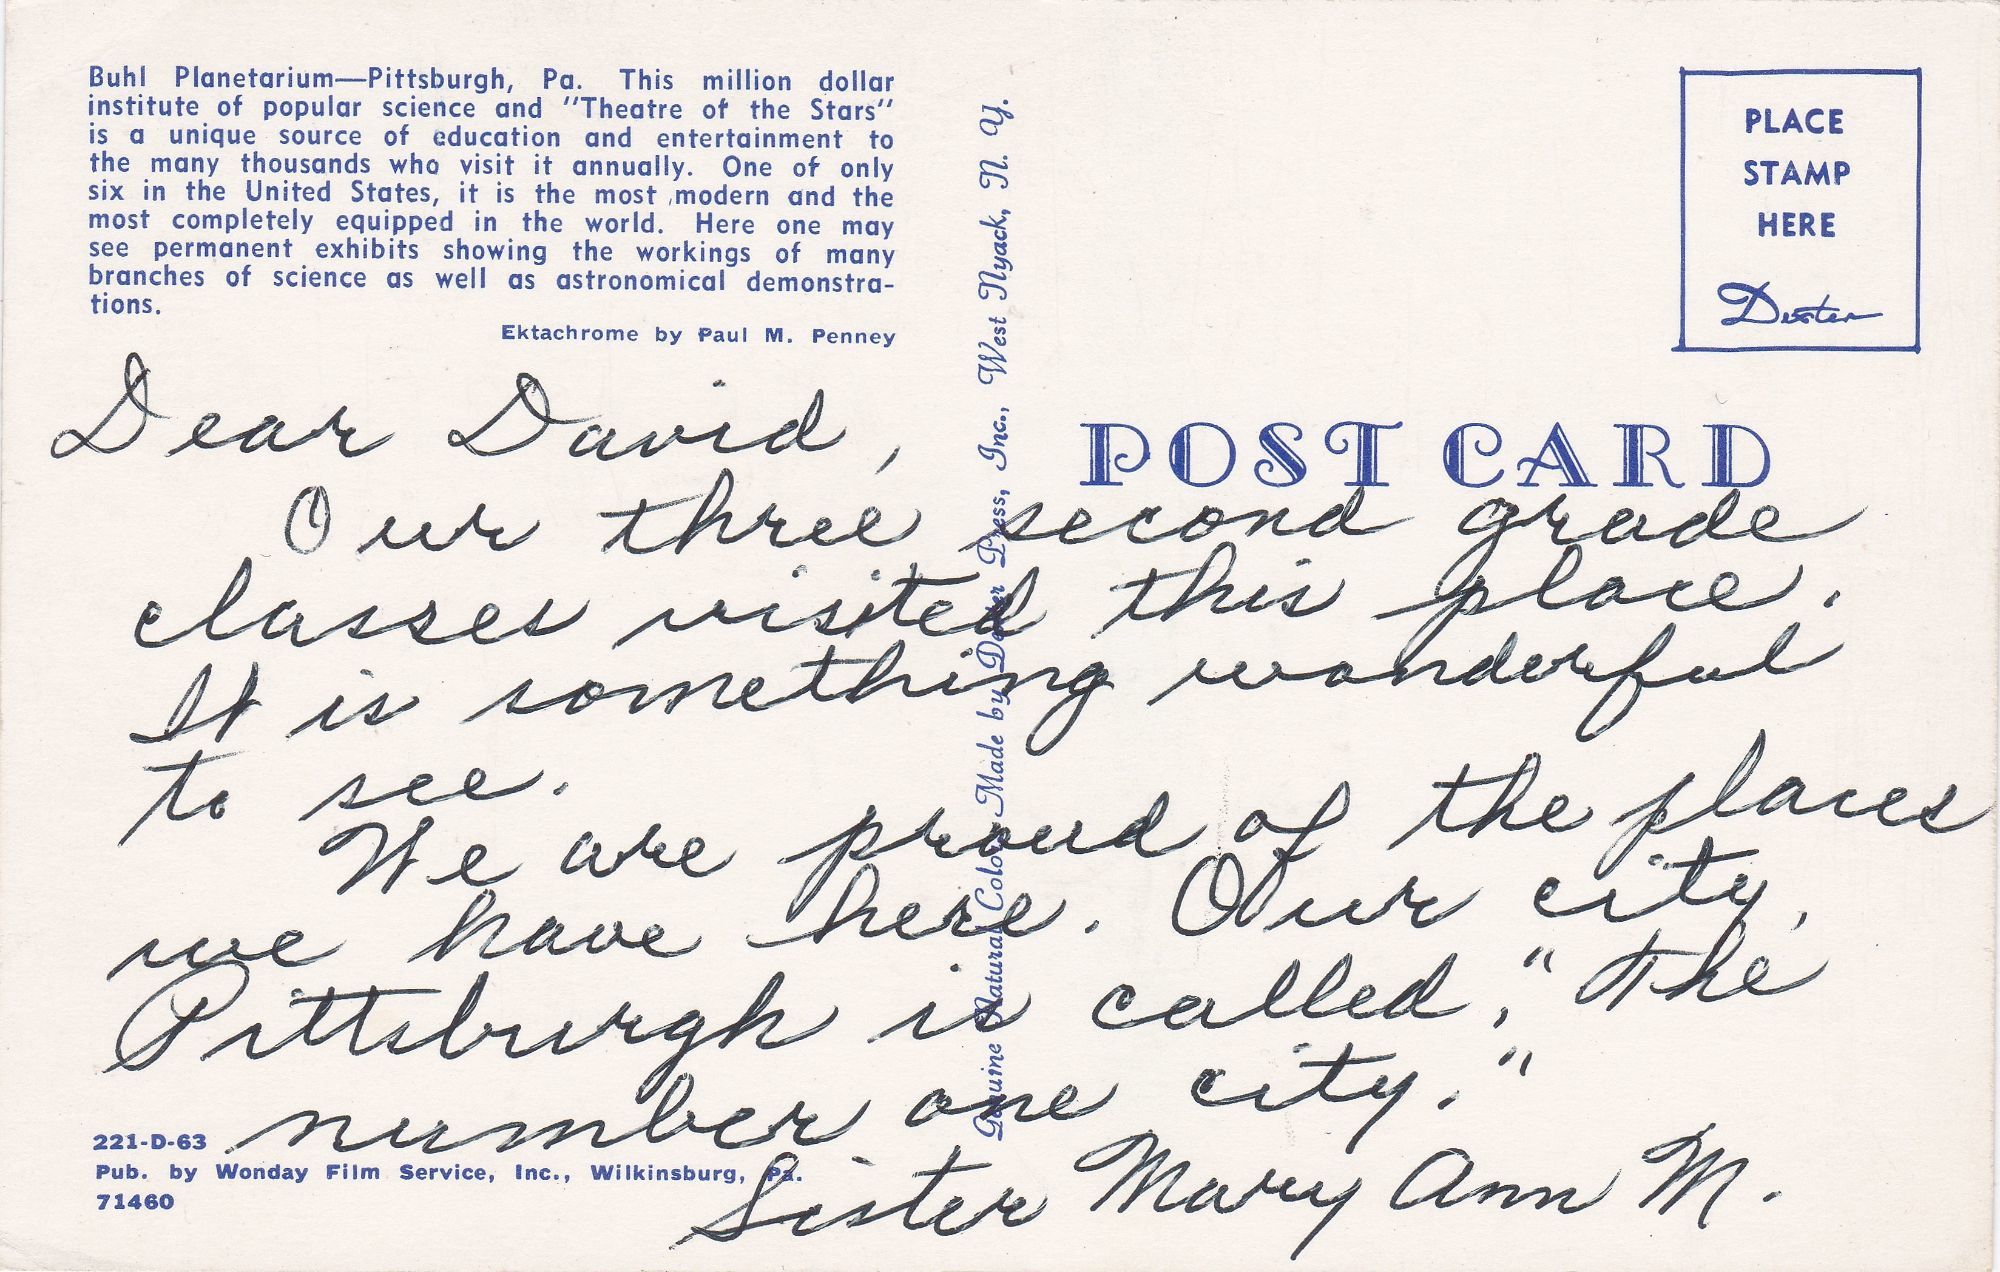 Buhl Planetarium—Pittsburgh, Pa. This million dollar
institute of popular science and "Theatre of the Stars"
is a unique source of education and entertainment to
the many thousands who visit it annually. One of only
six in the United States, it is the most modern and the
most completely equipped in the world. Here one may
see permanent exhibits showing the workings of many
branches of science as well as astronomical demonstra-
tions.
Ektachrome by Paul M. Penney
Genuine Natural Color Made by Dexter Press, Inc., West Nyack, N. Y.
PLACE
STAMP
HERE
Dexter
POST CARD
Dear David,
Our three second grade
classes visited this place.
It is something wonderful
to see.
We are proud of the places
we have here. Our city,
Pittsburgh is called, "The
number one city."
Sister Mary Ann M.
221-D-63
Pub. by Wonday Film Service, Inc., Wilkinsburg, Pa.
71460